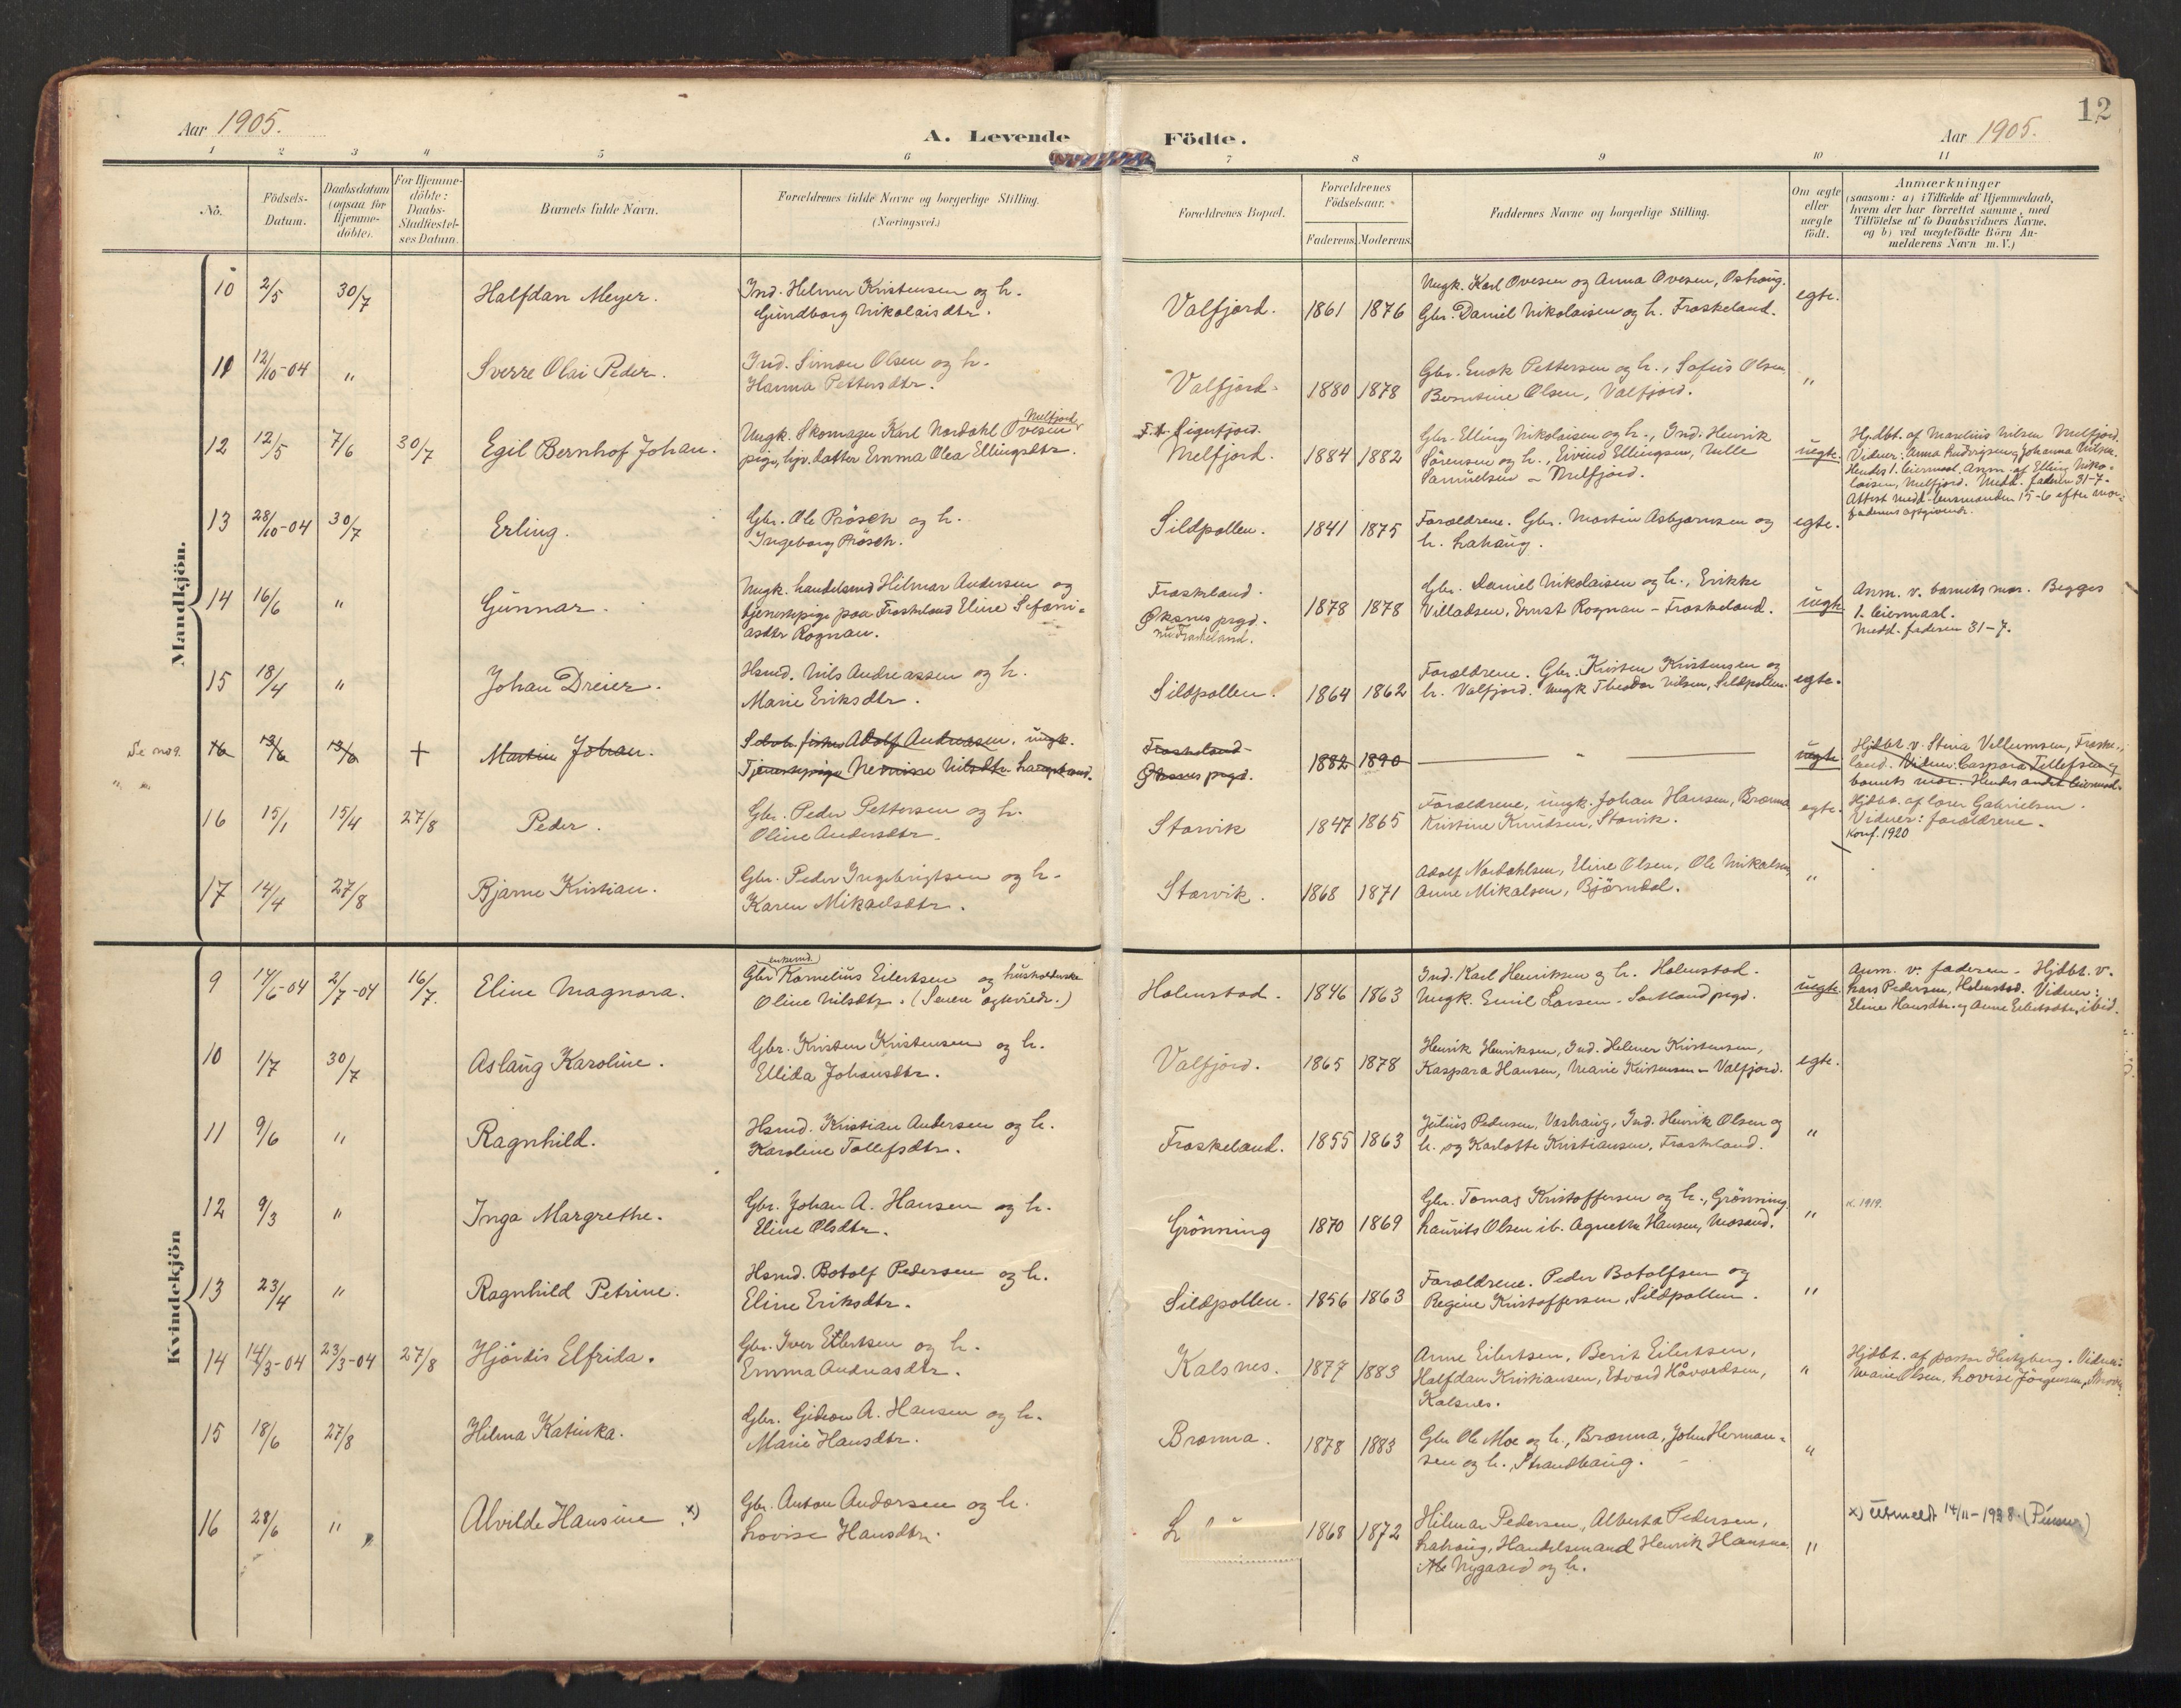 12
Aar 1905.
A. Levende Födte.
Aar 1905.
1 2 3 4 5 6 7 8 9 10 11
No.
Födsels-Datum.
Daabsdatum (ogsaa for Hjemme-döbte).
For Hjemme-döbte: Daabs-Stadfæstel-ses Datum.
Barnets fulde Navn.
Forældrenes fulde Navne og borgerlige Stilling.
(Næringsvei.)
Forældrenes Bopæl.
Forældrenes Födselsaar.
Faderens. Moderens.
Faddernes Navne og borgerlige Stilling.
Om ægte eller uægte födt.
Anmærkninger
(saasom: a) i Tilfælde af Hjemmedaab,
hvem der har forrettet samme, med
Tilföielse af to Daabsvidners Navne.
og b) ved uægtefödte Börn An-
melderens Navn m. V.)
Mandkjön.
10 2/5 30/7 Halfdan Meyer.
Ind. Helmer Kristensen og h.
Gundborg Nikolaisdtr.
Valfjord. 1861 1876
Ungk. Karl Ovesen og Anna Ovesen, Osthaug.
Gbr. Daniel Nikolaisen og h. Fraskeland.
egte.
11 12/10-04 " Sverre Olai Peder.
Ind. Simon Olsen og h.
Hanna Pettersdtr.
Valfjord. 1880 1878
Gbr. Enok Pettersen og h., Sofus Olsen
Berntine Olsen, Valfjord.
"
12 12/5 7/6 30/7 Egil Bernhof Johan.
Melfjord
Ungk. Skomager Karl Nordahl Ovesen
pige, hjv. datter Emma Olea Ellingsdtr.
F. A. Sigerfjord.
Melfjord. 1884 1882
Gbr. Elling Nikolaisen og h., Ind. Henrik
Sörensen og h., Eivind Ellingsen, Nille
Samuelsen - Melfjord.
uegte.
Hjdbt. af Maselius Nilsen Melfjord.
Vidner: Anna Ludvigsen og Johanna Nilsen.
Hendes 1. leiermaal. Anm. af Elling Niko-
laisen, Melfjord. Medd. faderen 31-7-
Attest medd. lensmanden 15-6 efter mor-
faderens opgivende.
13 28/10-04 30/7 Erling.
Gbr. Ole Prösch og h.
Ingeborg Prösch.
Sildpollen. 1841 1875
Forældrene. Gbr. Martin Asbjørnsen og
h. Lahaug.
egte.
14 16/6 " Gunnar.
Ungk. handelsmd Hilmar Andersen og
tjenestepige paa Fraskeland Eline Sefani-
asdtr Rognan.
Fraskeland.
Øksnes prgd.
nu: Fraskeland.
1878 1878
Gbr. Daniel Nikolaisen og h., Erikke
Villadsen, Ernst Rognan - Fraskeland.
uegte
Anm. v. barnets mor. Begges
1. leiermaal.
Medd. faderen 31-7.
15 18/4 " Johan Dreier.
Hsmd. Nils Andreassen og h.
Marie Eriksdtr.
Sildpollen. 1864 1862
Forældrene. Gbr. Kristen Kristensen og
h. Valfjord. Ungk Theodor Nilsen, Sildpollen.
egte.
Se no 9. 16 13/6 13/6 + Martin Johan.
" "
Selvh. fisker Adolf Andreasen, ungk.
Tjenestepige Nernise Nilsdtr.
Fraskeland
Øksnes prgd.
1882 1890
uegte
Hjdbt. v. Stina Vellumsen, Fraske-
land. Vidner: Caspara Tellefsen og
barnets mor. Hendes andet leiermaal.
16 15/1 15/4 27/8 Peder.
Gbr. Peder Pettersen og h.
Oline Andersdtr.
Storvik 1847 1865
Forældrene, ungk. Johan Hansen, Brænna
Kristine Knudsen, Storvik.
egte.
Hjdbt. af lærer Gabrielsen.
Vidner: forældrene.
Konf. 1920
17 14/4 27/8 Bjarne Kristian.
Gbr. Peder Ingebrigtsen og h.
Karen Mikaelsdtr.
Storvik. 1868 1871
Adolf Nordahlsen, Eline Olsen, Ole Mikalsen,
Anne Mikalsen, Björndal.
"
Kvindekjön
9 14/6-04 2/7-04 16/7. Eline Magnora.
enkemd.
Gbr Kornelius Eilertsen og husholderske
Oline Nilsdtr. (Senere ægteviede.)
Holmstad. 1846 1863
Ind. Karl Henriksen og h. Holmstad.
Ungk. Emil Larsen. Sortland prgd.
uegte.
Anm. v. faderen. Hjdbt. v.
Lars Pedersen, Holmstad. Vidner:
Eline Hansdtr. og Anne Eilertsdtr, ibid.
10 1/7 30/7 Aslaug Karoline.
Gbr. Kristen Kristensen og h.
Ellida Johansdtr.
Valfjord. 1865 1878
Henrik Henriksen, Ind. Helmer Kristensen,
Kaspara Hansen, Marie Kristensen - Valfjord.
egte.
11 9/6 " Ragnhild.
Hsmd. Kristian Andersen og h.
Karoline Tollefsdtr.
Fraskeland. 1855 1863
Julius Pedersen, Vashaug, Ind. Henrik Olsen og
h. og Karlotte Kristiansen, Fraskeland.
"
12 9/3 " Inga Margrethe.
Gbr. Johan A. Hansen og h.
Eline Olsdtr.
Grönning 1870 1869
Gbr. Tomas Kristoffersen og h., Grönning
Laurits Olsen ib. Agnethe Hansen, Mosand.
"
K. 1919.
13 23/4 " Ragnhild Petrine.
Hsmd. Botolf Pedersen og h.
Eline Eriksdtr.
Sildpollen. 1856 1863
Forældrene. Peder Botolfsen og
Regine Kristoffersen, Sildpollen.
"
14 14/3-04 23/3-04 27/8 Hjördis Elfrida.
Gbr. Iver Eilertsen og h.
Emma Andreasdtr.
Kalsnes. 1877 1883
Anne Eilertsen, Berit Eilertsen,
Halfdan Kristiansen, Edvard Håvardsen,
Kalsnes.
"
Hjdbt. af pastor Hertzberg. Vidner:
Marie Olsen, Lovise Jörgensen,
15 18/6 27/8 Hilma Katinka.
Gbr. Gideon A. Hansen og h.
Marie Hansdtr.
Brænna. 1878 1883
Gbr Ole Moe og h., Brænna, John Herman-
sen og h., Strandhaug.
"
16 28/6 " Alvilde Hansine x)
Gbr. Anton Andorsen og h.
Lovise Hansdtr.
L 1868 1872
Hilmar Pedersen, Alberta Pedersen,
Lahaug, Handelsmand Henrik Hansen
Nygaard og h.
"
x) Utmeldt 14/11-1938.